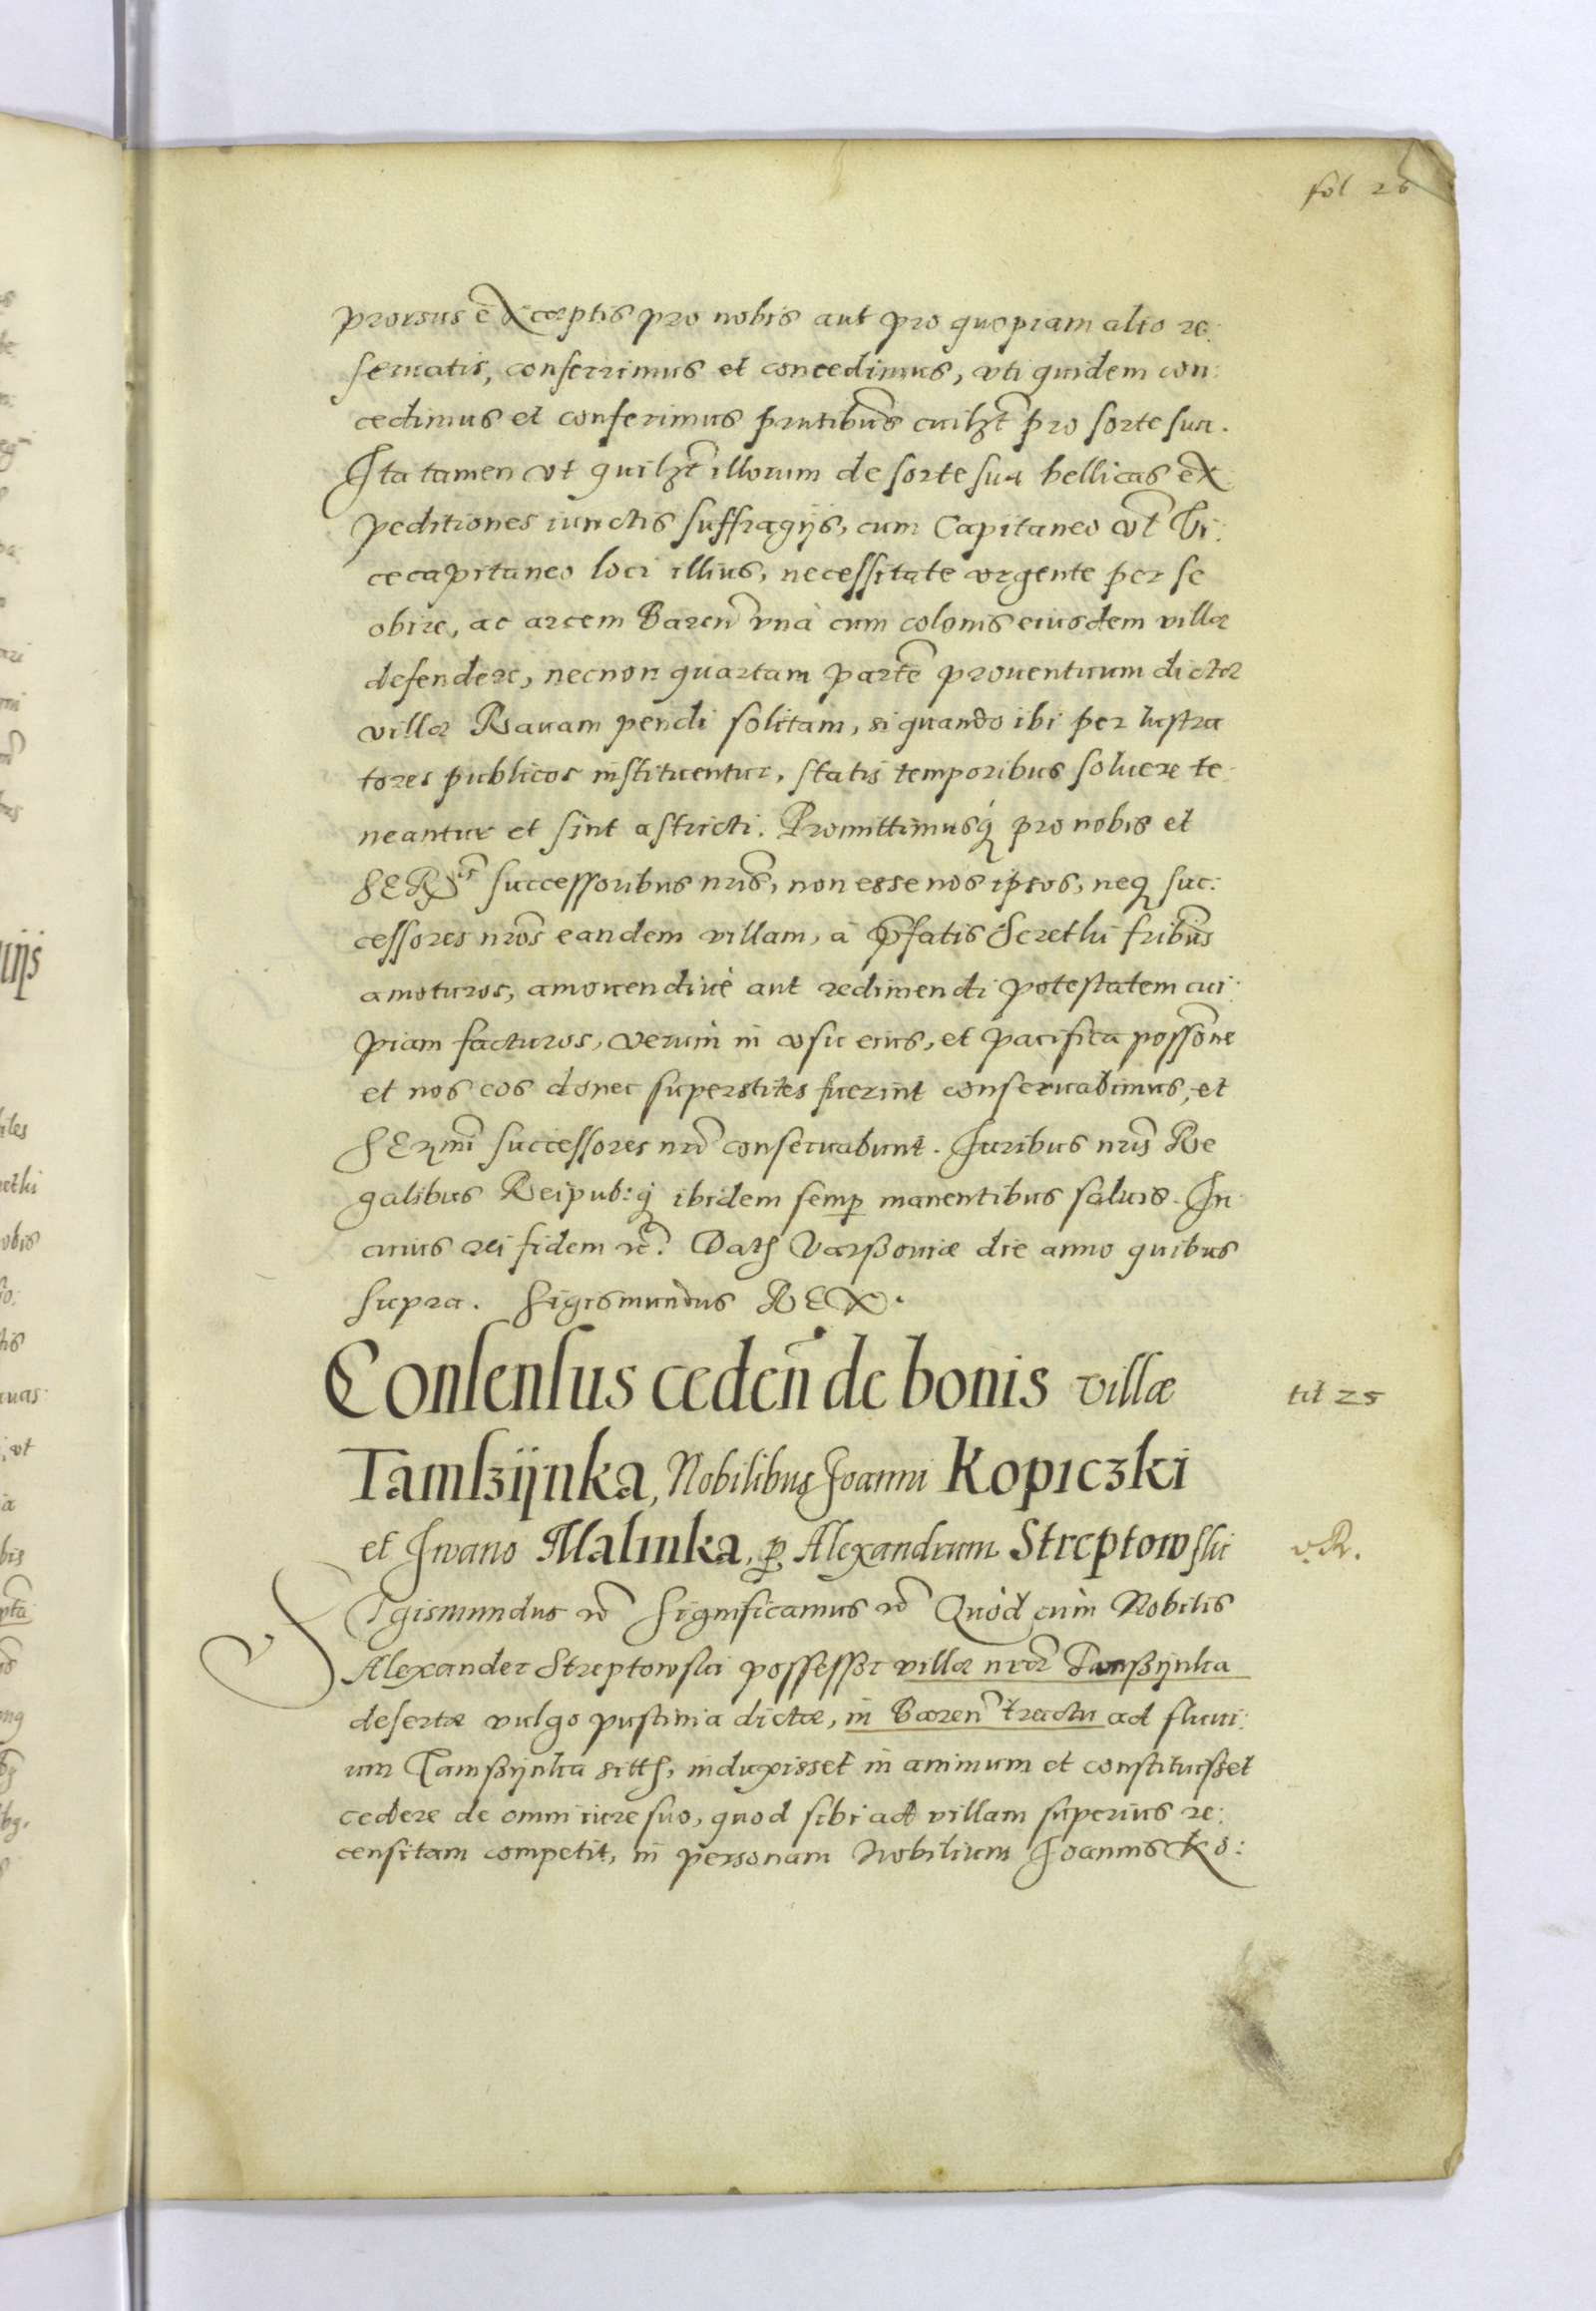 fol 26
prorsus exceptis pro nobis aut pro quopiam alio re:
seruatis, conferrimus et concedimus, vti quidem con:
cedimus et conferimus pñtibus cuilzt pro sorte sua.
Ita tamen vt quilzt illorum de sorte sua bellicas ex
peditiones iunctis suffragijs, cum Capitaneo vel Vi:
cecapitaneo loci illius, necessitate vrgente per se
obire, ac arcem Bareñ vnà cum colonis eiusdem villæ
defendere, necnon quartam parte prouentuum dictæ
villæ Rauam pendi solitam, si quando ibi per lustra
tores publicos instituentur, statis temporibus soluere te
neantur et sint astricti. Promittimusq́ pro nobis et
SERis successoribus nris, non esse nos ipsos, neq suc:
cessores nros eandem villam, à pfatis Seretlii fribus
amoturos, amouendiuè aut redimendi potestatem cui:
piam facturos, verùm in vsu eius, et pacifica possone
et nos eos donec superstites fuerint conseruabimus, et
SERmi successores nri conseruabunt. Iuribus nris Re
galibus Reipub:q́ ibidem semp manentibus saluis. In
cuius rei fidem rc. Dath Varßouiæ die anno quibus
supra. Sigismundus REX.
Consensus cedeñ de bonis villæ
tit 25
Tamßijnka, Nobilibus Joanni Kopiczki
et Iwano Malinka, p Alexandrum Streptowski
v. R.
Sigismundus rc Significamus rc Quòd cùm Nobilis
Alexander Streptowski possessor villæ nræ Tamßijnka
desertæ vulgo pustinia dictæ, in Bareñ tractu ad fluui:
um Tamßijnka sitth, induxisset in animum et constituisset
cedere de omni iure suo, quod sibi ad villam superius re:
censitam competit, in personam Nobilium Joannis Ko: